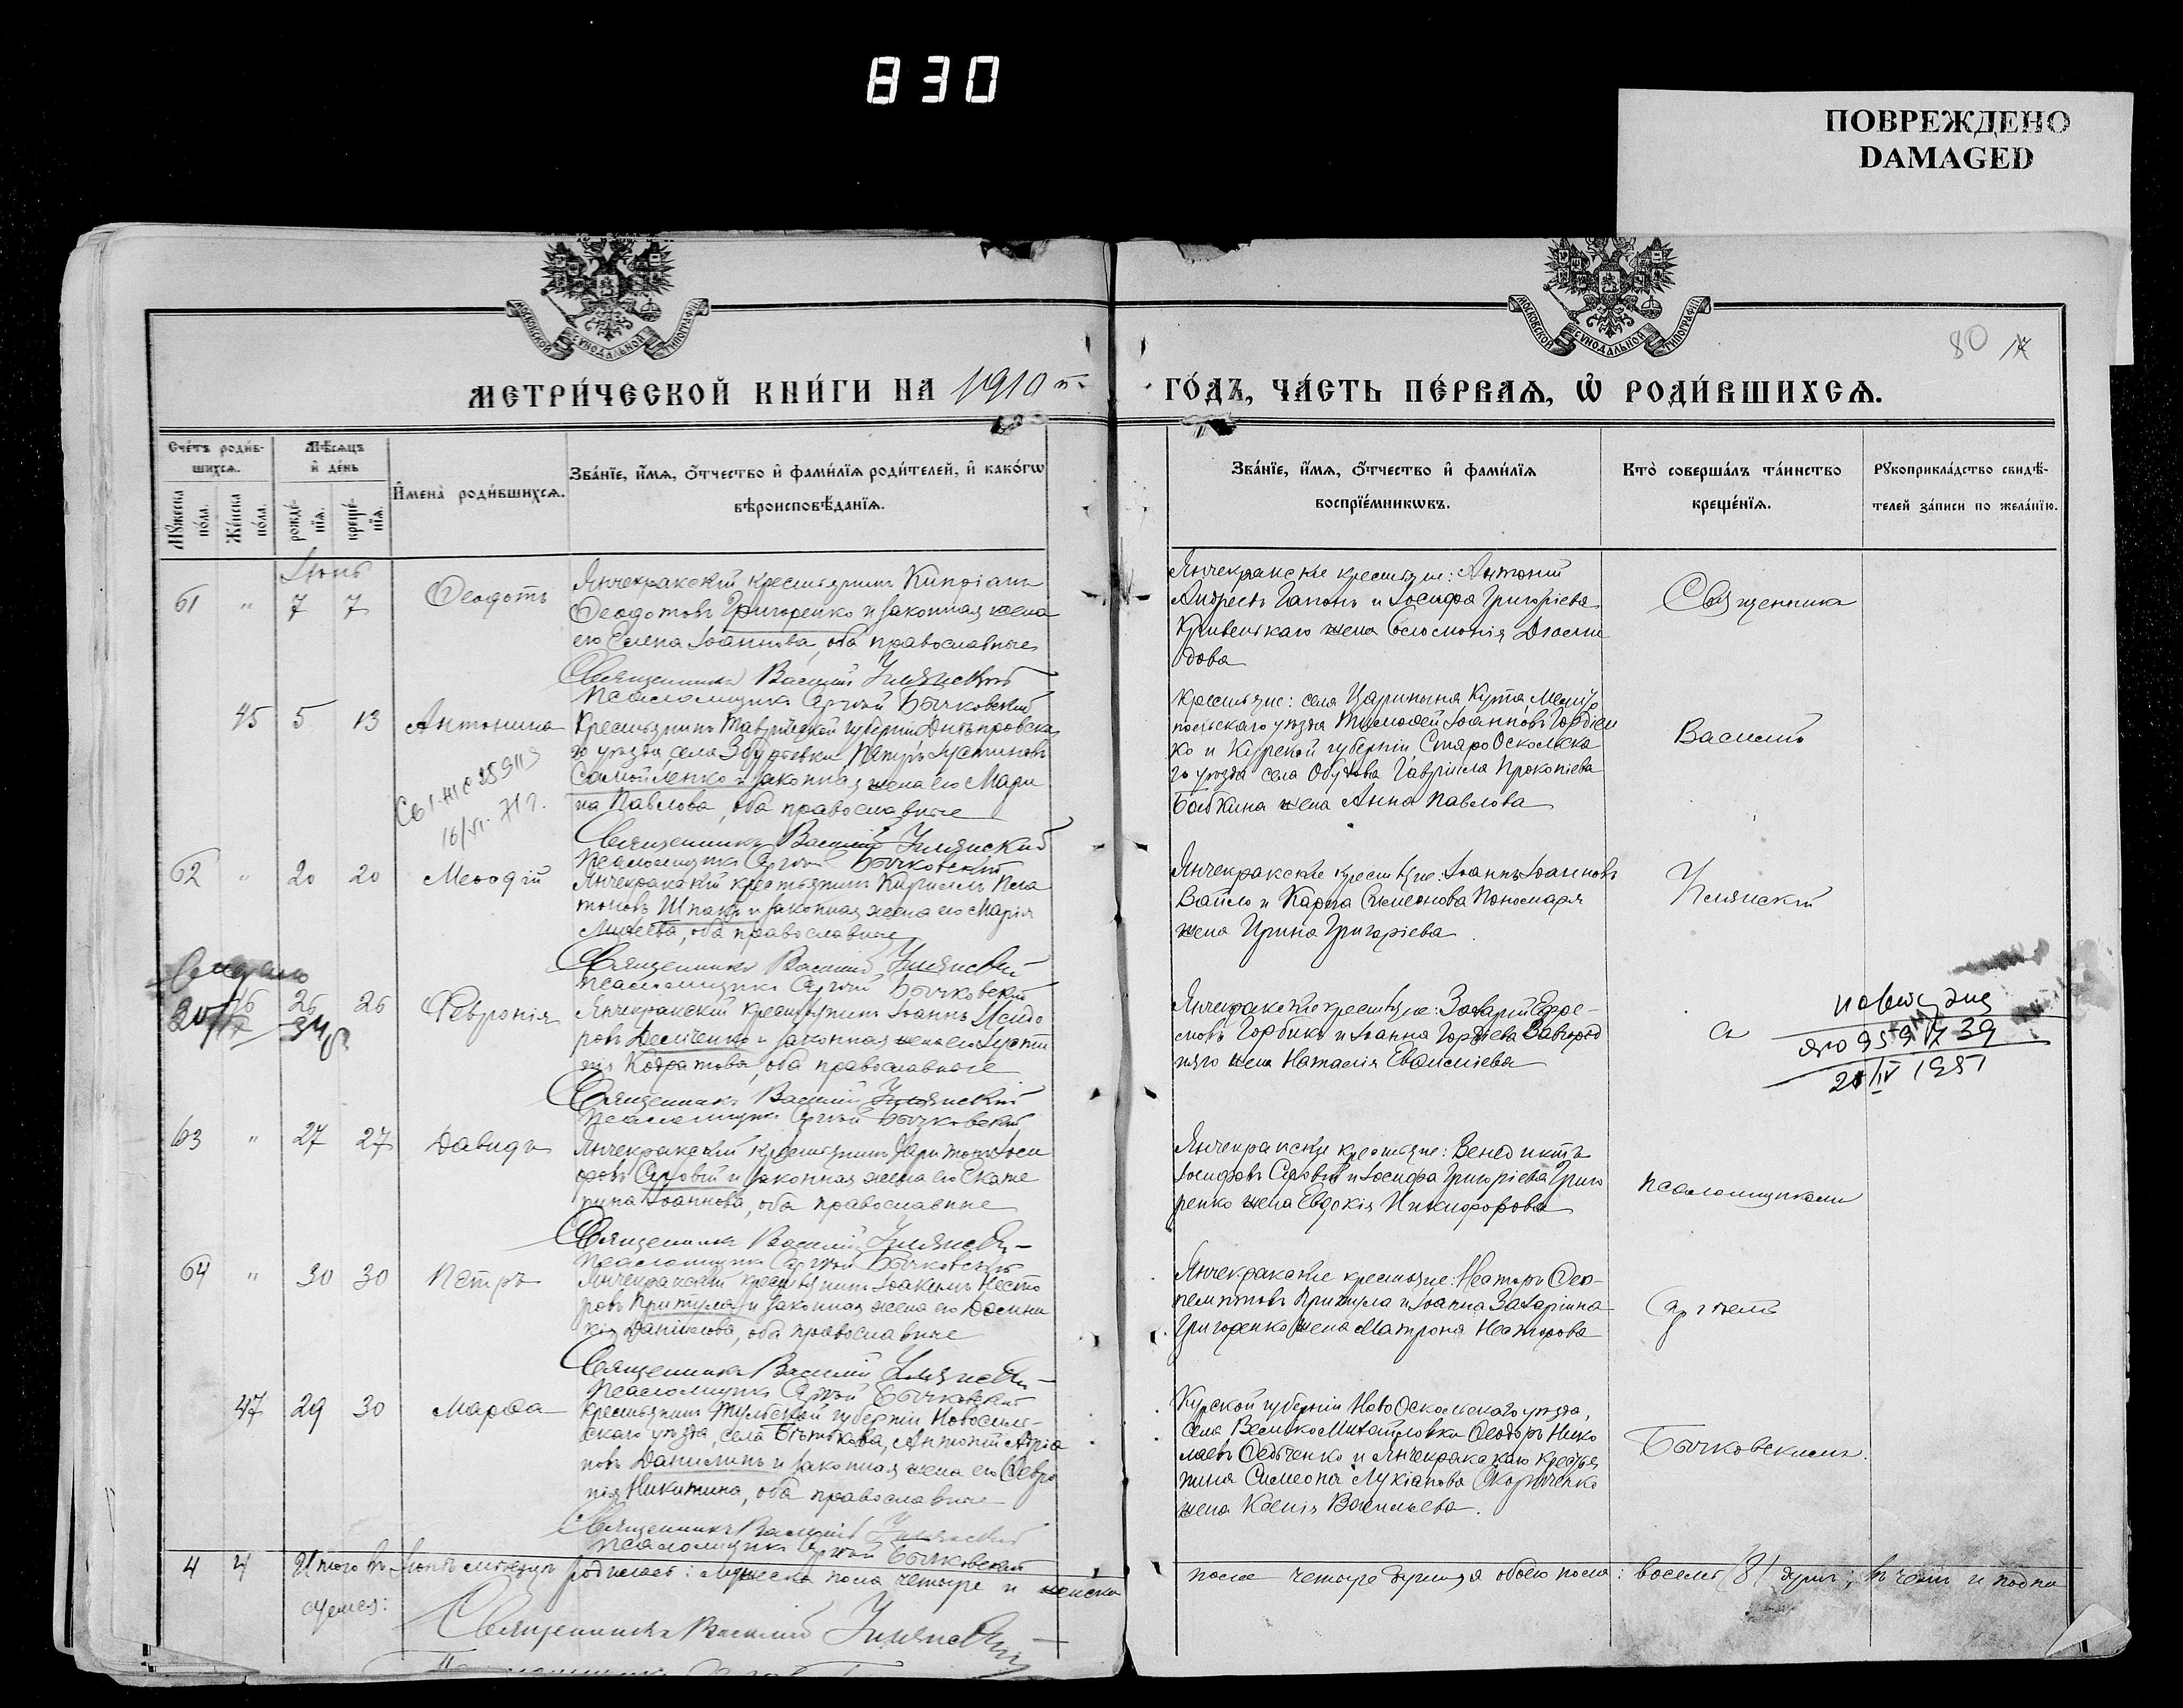 830
ПОВРЕЖДЕНО
DAMAGED
МОСКОВСКОЙ СУНОДАЛЬНОЙ ТИПОГРАФІИ
МОСКОВСКОЙ СУНОДАЛЬНОЙ ТИПОГРАФІИ
80 17
МЕТРИ́ЧЕСКОЙ КНИ́ГИ НА 1910 й
ГО́ДЪ, ЧА́СТЬ ПЕ́РВАѦ, Ѡ҆ РОДИ́ВШИХСѦ.
Сче́тъ роди́в-
шихсѧ.
Мꙋ́жеска по́ла.
Же́нска по́ла.
Мѣ́сѧцъ
и҆ де́нь
рожде́-нїѧ.
креще́-нїѧ.
И҆мена̀ роди́вшихсѧ.
Зва́нїе, и҆́мѧ, ѻ҆́тчество и҆ фами́лїѧ роди́телей, и҆ како́гѡ
вѣроисповѣ́данїѧ.
Зва́нїе, и҆́мѧ, ѻ҆́тчество и҆ фами́лїѧ
воспрїе́мникѡвъ.
Кто̀ соверша́лъ та́инство
креще́нїѧ.
Рꙋкоприкла́дство свидѣ́-
телей за́писи по жела́нїю.
Іюнь
61 " 7 7 Ѳеодотъ
Янчекракскій крестьянинъ Кипріанъ
Ѳеодотовъ Григоренко и законная жена
его Елена Іоаннова, оба православные
Священникъ Василій Умянскій
Псаломщикъ Сергѣй Бычковскій
Янчекракскіе крестьяне: Антоній
Андреевъ Гапонъ и Іосифа Григоріева
Кривенькаго жена Соломонія
дова
Священникъ
45 5 13 Антонина
Крестьянинъ Таврической губерніи Днѣпровска
го уѣзда, села Збурьевки, Петръ Іустиновъ
Самойленко и законная жена его Мари
на Павлова, оба православные
16/VI. 71 г.
Священникъ Василій Умянскій
Псаломщикъ Сергѣй Бычковскій
крестьяне: села Царицына Кута, Мелито
польскаго уѣзда Тимоѳей Іоанновъ Гордіен
ко и Курской губерніи СтароОскольска
го уѣзда села Обухова Гавріила Прокопіева
Бабкина жена Анна Павлова
Василій
62 " 20 20 Меѳодій
Янчекракскій крестьянинъ Кириллъ Пла
тоновъ Шпакъ и законная жена его Марія
Михеева, оба православные
Священникъ Василій Умянскій
Псаломщикъ Сергѣй Бычковскій
Янчекракскіе крестьяне: Іоаннъ Іоанновъ
Вайло и Карпа Симеонова Пономаря
жена Ирина Григоріева
Умянскій
46 26 26 Февронія
Янчекракскій крестьянинъ Іоаннъ Исидо
ровъ Демченко и законная жена его Іусти
нія Кодратова, оба православные
Священникъ Василій Умянскій
Псаломщикъ Сергѣй Бычковскій
Янчекракскіе крестьяне: Захарій Ефре-
мовъ Горбикъ и Іоанна Гордіева Завгород
няго жена Наталія Евдокимова
съ
21/IV 1951
63 " 27 27 Давидъ
Янчекракскій крестьянинъ Харитонъ Іоси
фовъ Садовый и законная жена его Екате
рина Іоаннова, оба православные
Священникъ Василій Умянскій
Псаломщикъ Сергѣй Бычковскій
Янчекракскіе крестьяне: Венедиктъ
Іосифовъ Садовый и Іосифа Григоріева Григо
ренко жена Евдокія Никифорова
псаломщикомъ
64 " 30 30 Петръ
Янчекракскій крестьянинъ Іоакимъ Несто
ровъ Притула и законная жена его Домни
кія Даніилова, оба православные
Священникъ Василій Умянскій
Псаломщикъ Сергѣй Бычковскій
Янчекракскіе крестьяне: Несторъ Ѳео-
пемптовъ Притула и Іоанна Захаріина
Григоренко жена Матрона Несторова
Сергѣемъ
47 29 30 Марѳа
Крестьянинъ Тульской губерніи Новосиль-
скаго уѣзда, села Бѣлькова, Антоній Адріа
новъ Данилинъ и законная жена его Февро
нія Никитина, оба православные
Священникъ Василій Умянскій
Псаломщикъ Сергѣй Бычковскій
Курской губерніи НовоОскольскаго уѣзда,
села ВеликоМихайловки Ѳеодоръ Нико
лаевъ Федченко и Янчекракскаго крестья
нина Симеона Лукіанова Скориченко
жена Ксенія Васильева.
Бычковскимъ.
4 4 Итого въ Іюнѣ мѣсяцѣ родилось: мужеска пола четыре и женска
пола четыре души, а обоего пола: восемь (8) душъ;
Священникъ Василій Умянскій